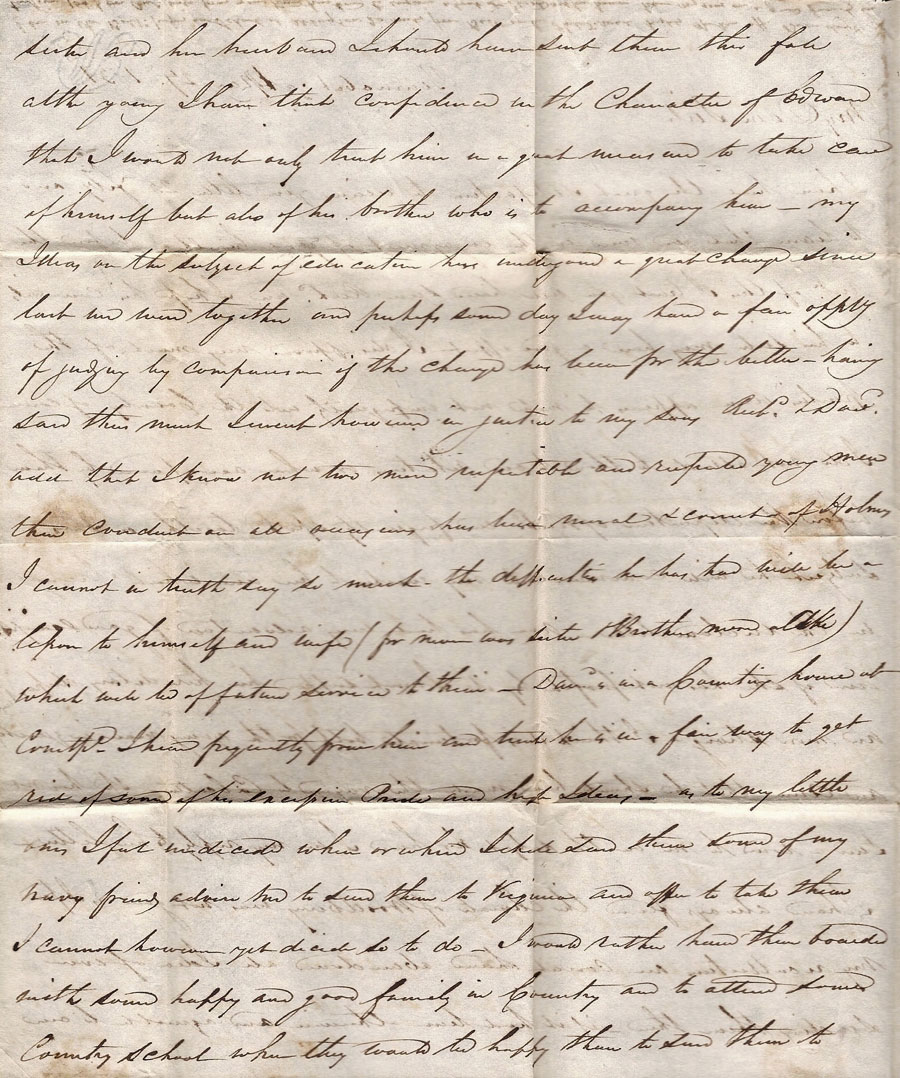 sister and her husband I should have sent them this fall
altho young I have that confidence in the Character of Edward
that I would not only trust him in a great measure to take care
of himself but also of his brother who is to accompany him – my
Ideas on the subject of education have undergone a great change since
last we were together and perhaps some day I may have a fair oppty
of judging by comparison if the change has been for the better – having
said thus much I must however in justice to my sons Richd. & Davd.
add that I know not two more respectable and respected young men
their conduct on all occasions has been moral & correct of Holmes
I cannot in truth say so much – the difficulties he has had will be a
lesson to himself and wife (for never was sister & Brother more alike)
which will be of future service to them – David is in a Counting house at
I hear frequently from him and trust he is in a fair way to get
rid of some of his excessive Pride and high Ideas – as to my little
ones I feel undecided when or where I shall send them some of my
navy friends advise me to send them to Virginia and offer to take them
I cannot however yet decide so to do – I would rather have them boarded
with some happy and good family in Country and to attend some
Country school when they would be happy than to send them to